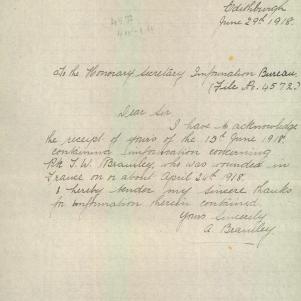 Edithburgh
June 29th 1918.
4572
To the Honorary Secretary Information Bureau.
(File No. 4572.)
Dear Sir,
I have to acknowledge
the receipt of yours of the 13th June 1918.
containing Information concerning
Pte T. W. Bramley, who was wounded in
France on or about April 24th 1918.
I hereby tender my sincere thanks
for information therein contained.
Yours Sincerely
A. Bramley